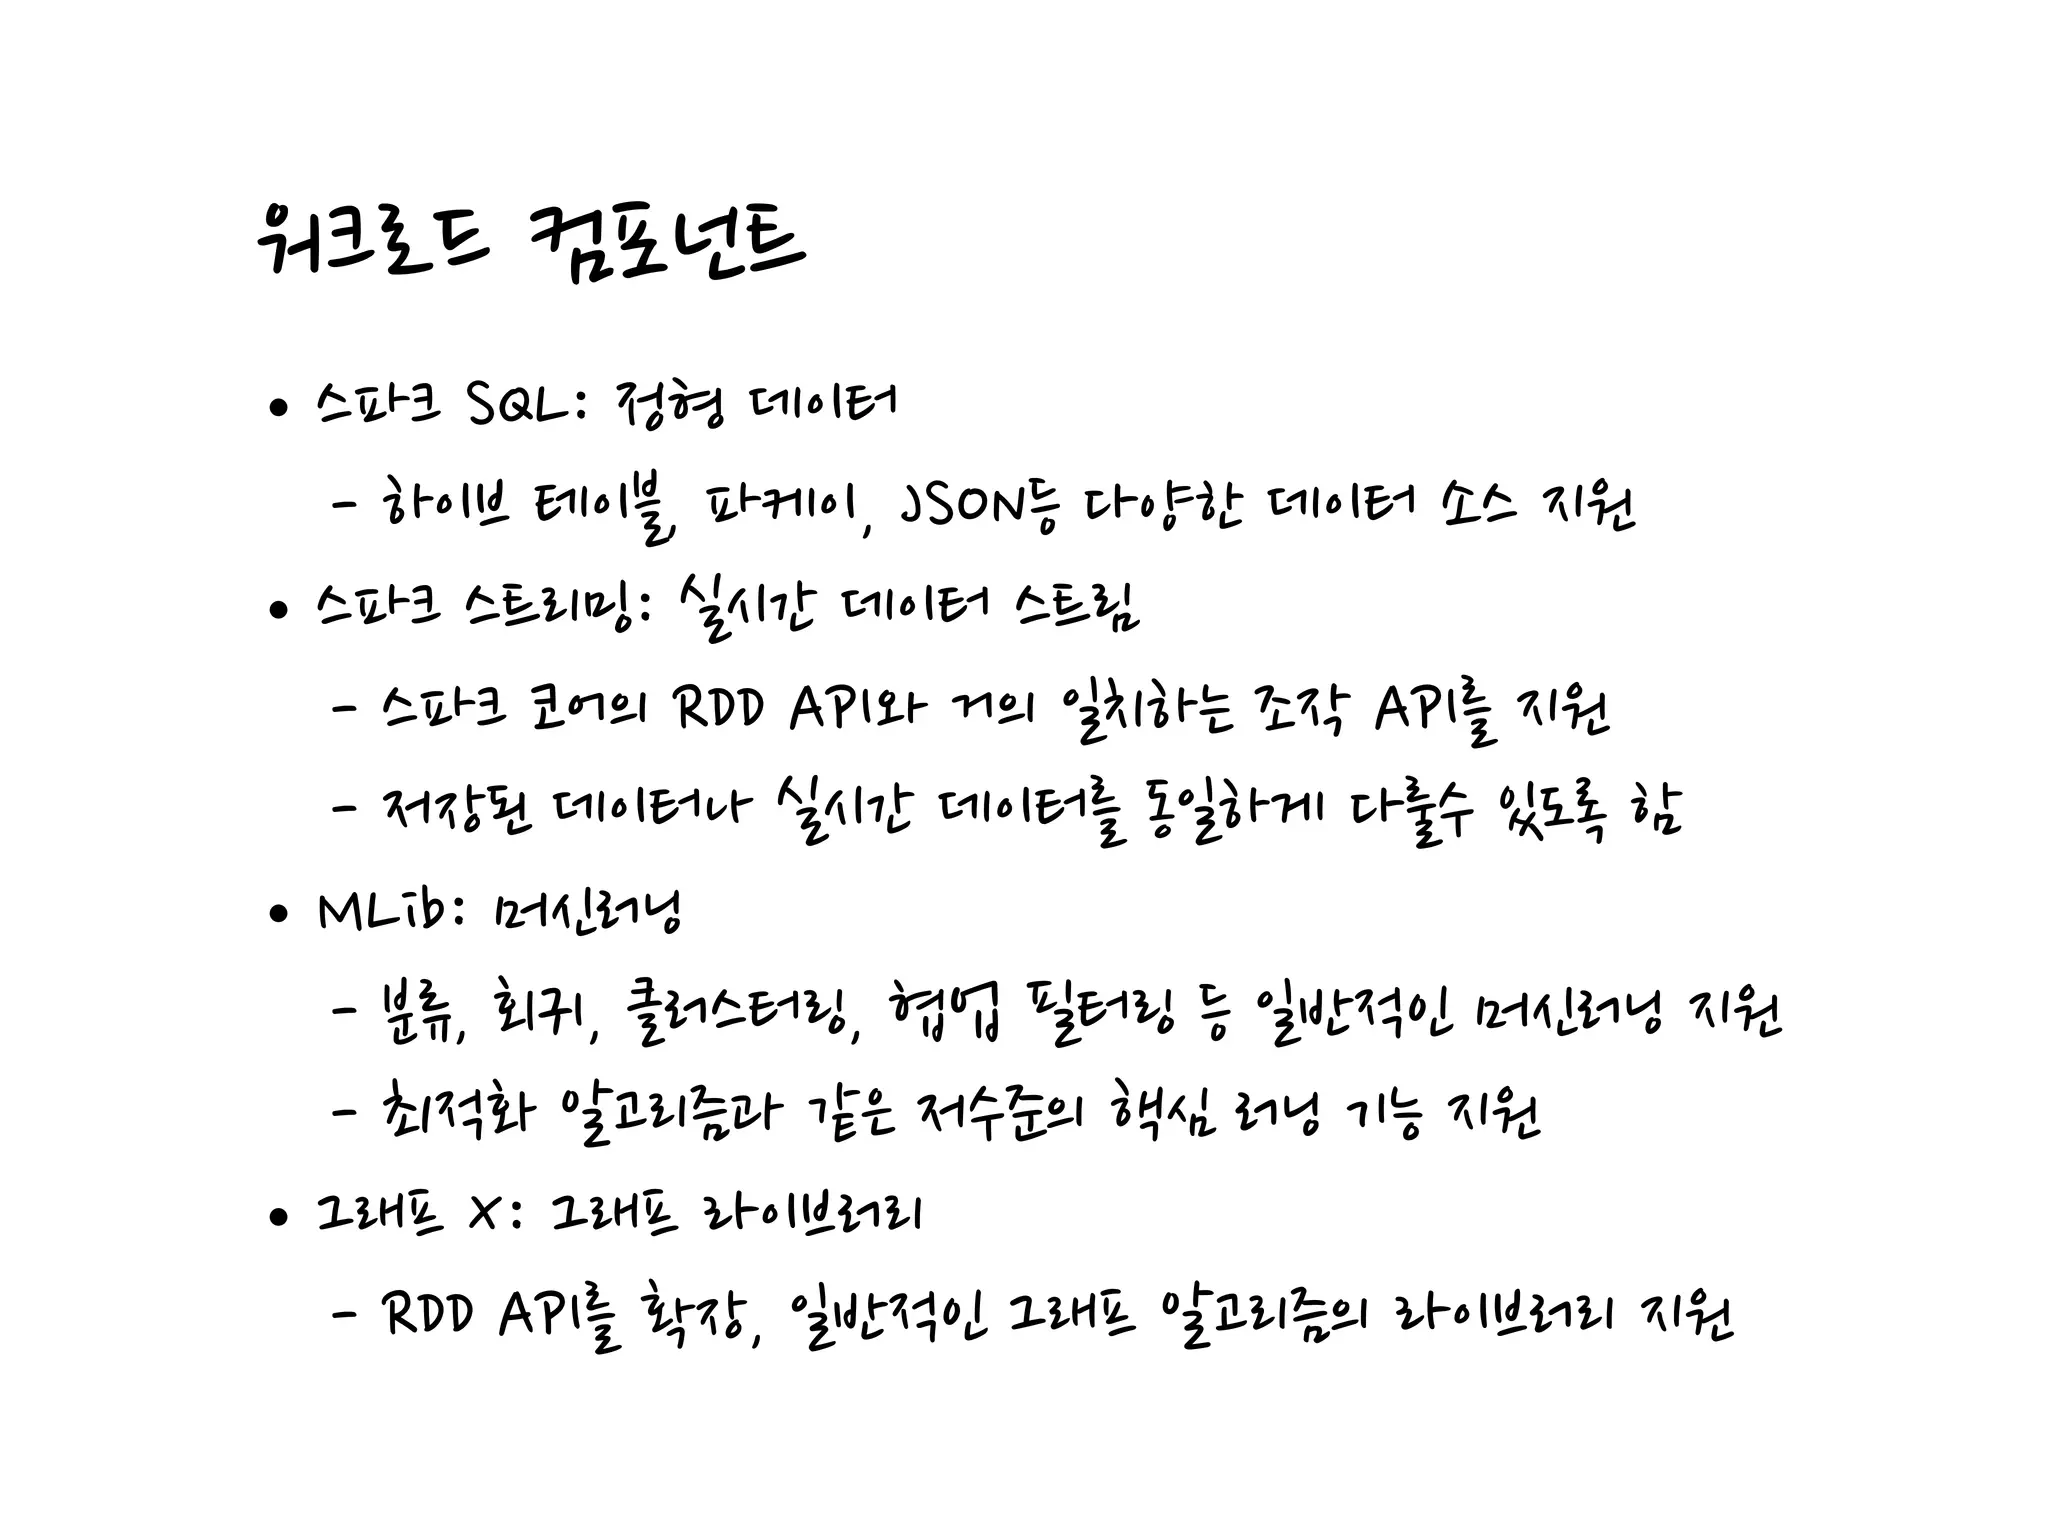 워크로드 컴포넌트
• 스파크 SQL: 정형 데이터
- 하이브 테이블, 파케이, JSON등 다양한 데이터 소스 지원
• 스파크 스트리밍: 실시간 데이터 스트림
- 스파크 코어의 RDD API와 거의 일치하는 조작 API를 지원
- 저장된 데이터나 실시간 데이터를 동일하게 다룰수 있도록 함
• MLib: 머신러닝
- 분류, 회귀, 클러스터링, 협업 필터링 등 일반적인 머신러닝 지원
- 최적화 알고리즘과 같은 저수준의 핵심 러닝 기능 지원
• 그래프 X: 그래프 라이브러리
- RDD API를 확장, 일반적인 그래프 알고리즘의 라이브러리 지원